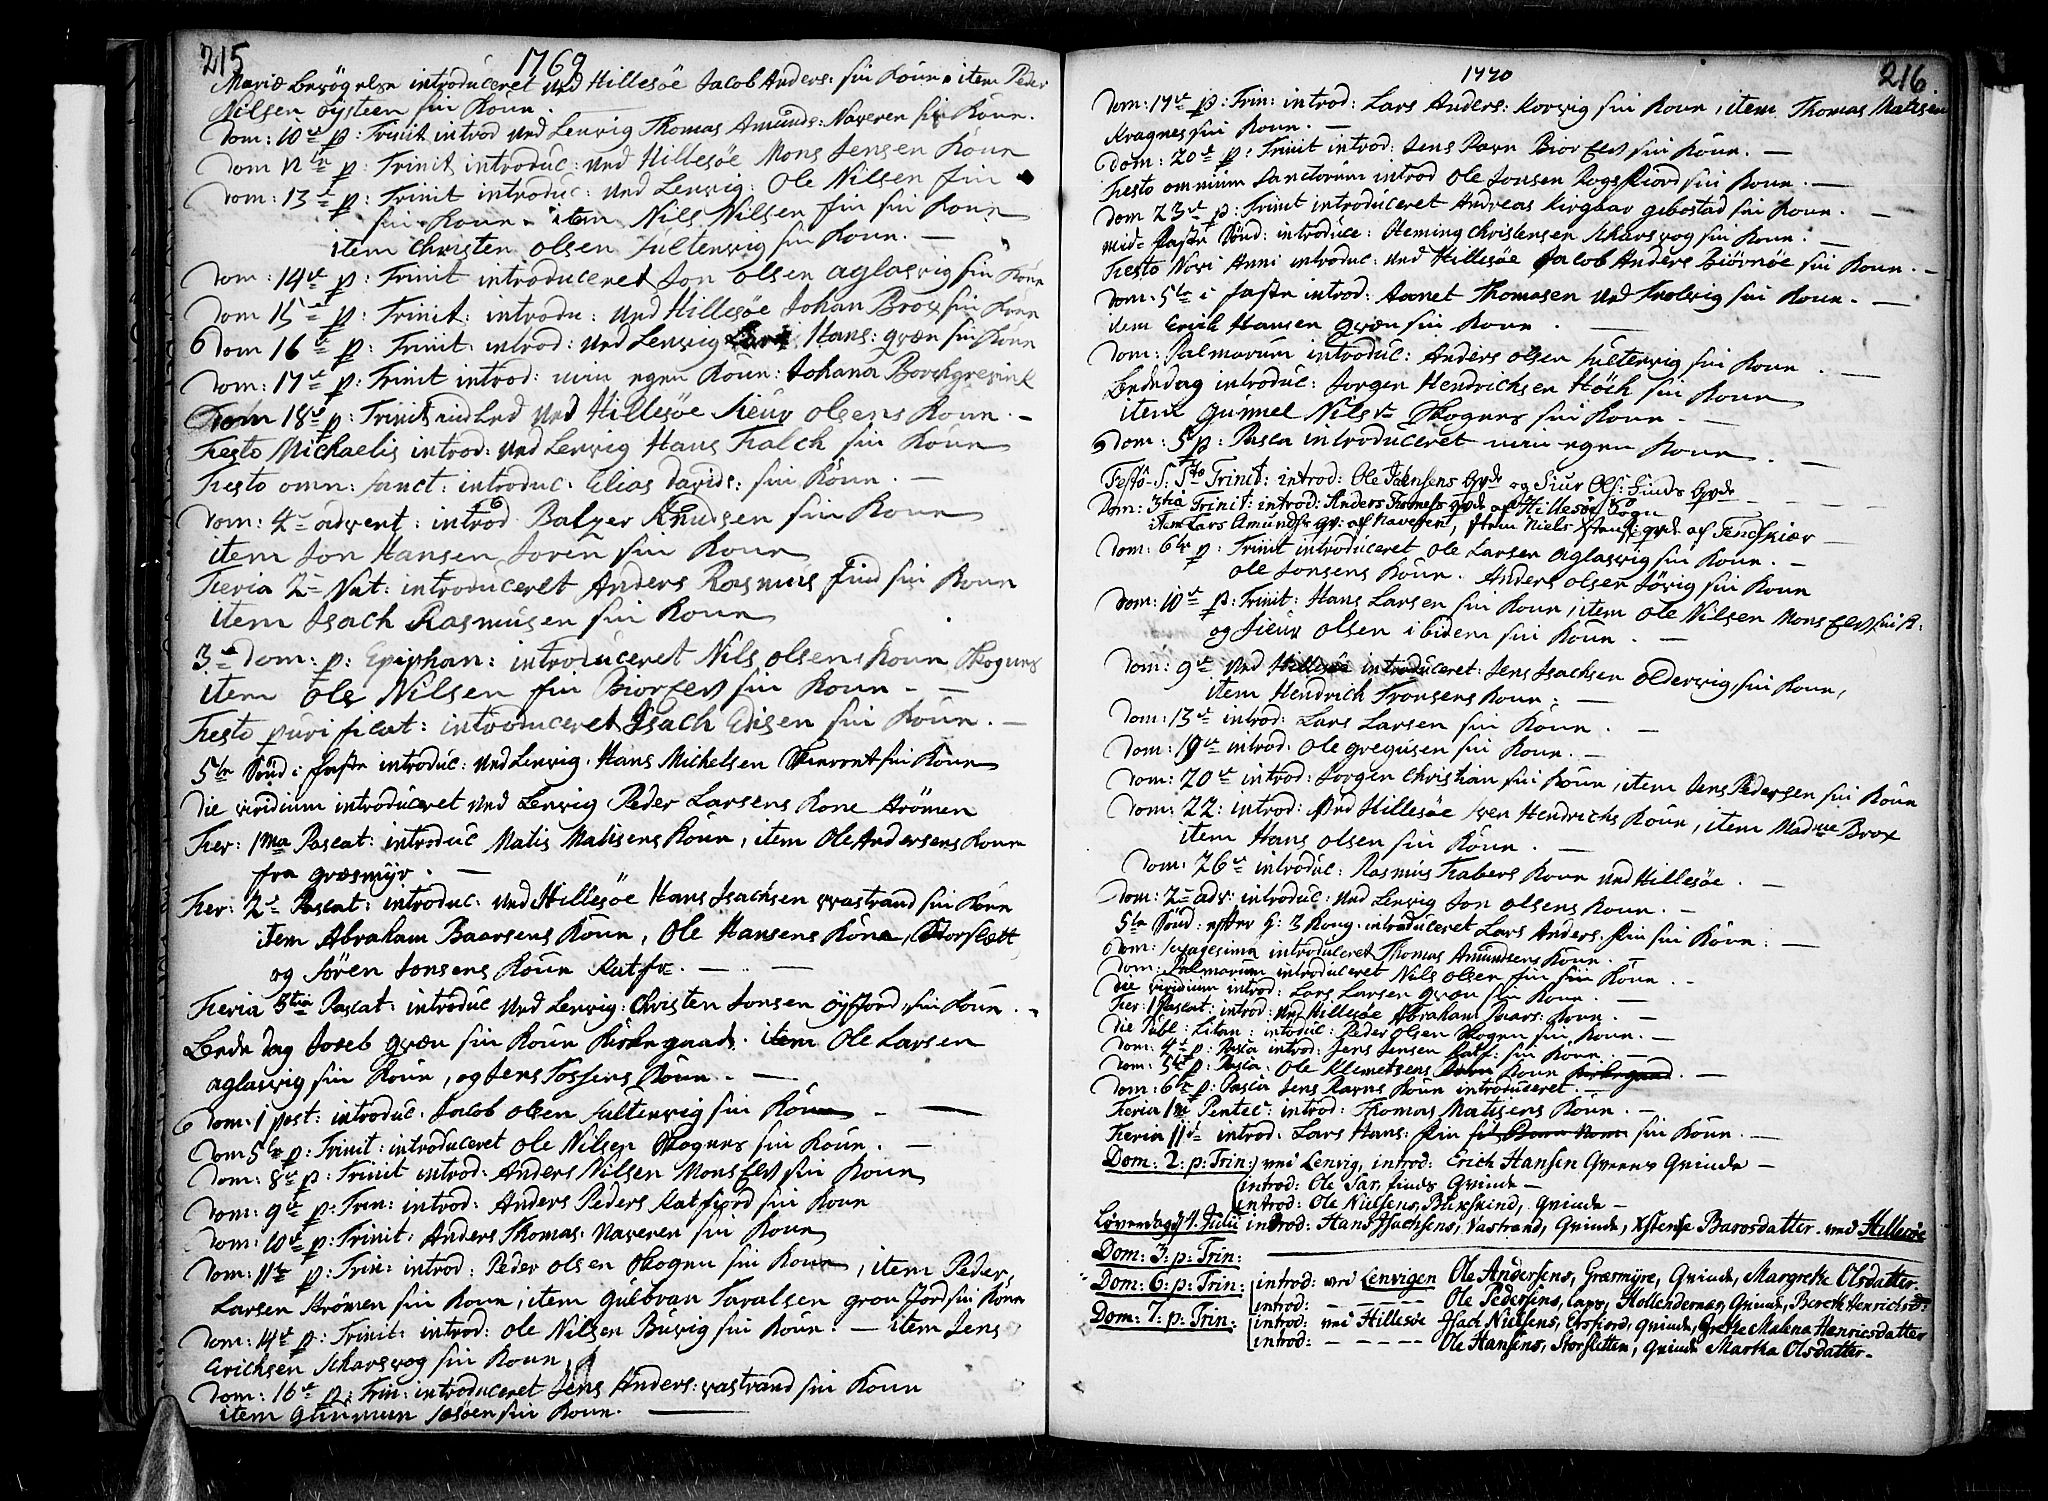 215
1769
Mariæ besögelse introduceret ved Hillesöe Jacob Anders: sin Koun. item Peder
Nilsen öysteen sin Koun.
Dom: 10de p: Trinit introd ved Lenvig Thomas Amunds: Naveren sin Koun.
Dom 12te p: Trinit introduc: ved Hillesöe Mons Jensen Koun
Dom: 13de p: Trinit introduc: ved Lenvig: Ole Nilsen fin
sin Koun. item Nils Nilsen fin sin Koun
item Christen Olsen Sultenvig sin Koun. —
Dom: 14de p: Trinit introduceret Jon Olsen aglasvig sin Koun
Dom 15de p: Trinit: introdu: ved Hillesöe Johan Brox sin Koun
Dom 16de p: Trinit: introd: ved Lenvig Lars Hans: qvæn sin Koun
Dom: 17de p: Trinit introd: min egen Koun: Johana Borchgrevink
Dom 18de p: Trinit indled ved Hillesöe Sieur Olsens Koun. —
Festo Michaelis introd: ved Lenvig Hans Falch sin Koun
Festo omn: sanct: introduc: Elias Davids: sin Koun. —
Dom: 4de advent: introd: Balzer Knudsen sin Koun
item Jon Hansen Soren sin Koun
Feria 2de Nat: introduceret Anders Rasmus find sin Koun
item Isach Rasmusen sin Koun
3de Dom: p: Epiphan: introduceret Nils Olsens Koun Skognes
item Ole Nilsen fin BiorElv sin Koun. —
Festo purificat: introduceret Isach Edisen sin Koun. —
5te Sönd: i faste introduc: ved Lenvig. Hans Michelsen sin Koun
Die viridium introduceret ved Lenvig Peder Larsens Kone Strömen
Fer: 1ma Pascat: introduc Matis Matisens Koun, item Ole Andersens Koun
fra græsmÿr. —
Fer: 2de Pascat: introduc: ved Hillesöe Hans Isachsen vastrand sin Koun
item Abraham Baarsens Koun, Ole Hansens Kone, Storslætt
og Sören Jonsens Koun Katfi: — —
Feria 3tia Pascat: introduc ved Lenvig: Christen Jonsen öyfjord, sin Koun.
Bededag Joseb qvæn sin Koun Kirkegaard. item Ole Larsen
aglasvig sin Koun, og Jens Tossens Koun. —
Dom: 1 post: introduc. Jacob Olsen sultenvig sin Koun —
Dom 5te p: Trinit: introduceret Ole Nilsen Skognes sin Koun. —
Dom: 8de p: Trinit introd: Anders Nilsen MonsElv sin Koun
Dom: 9de p: Trin: introd: Anders Peders Katfiord sin Koun
Dom: 10de p: Trinit: Anders Thomas: Naveren sin Koun
Dom: 11te p: Trin: introd: Peder Olsen Skogen sin Koun, item Peder
Larsen Strömen sin Koun, item Gulbran Taralsen gronfjord sin Koun
Dom: 14de p: Trinit: introd: Ole Nilsen Buvig sin Koun. — item Jens
Erichsen Skarsvog sin Koun,
Dom: 16de p: Trin: introduceret Jens Anders: vastrand sin Koun
item Gunmun sin Koun. —
1770
216.
Dom: 17de p: Trin: introd: Lars Anders: Korvig sin Koun, item Thomas Matisen
Kragnes sin Koun. —
Dom: 20de p: Trinit introd: Jens Ravn BiorElv sin Koun. —
Festo omnium Sanctorum introd Ole Jonsen Rogsfiord sin Koun. —
Dom 23de p: Trinit introduceret Andreas Kirgaar gibostad sin Koun. —
Mid-faste Sönd: introduce: Heming Christensen Skarsvog sin Koun. —
Festo Novi Anni introduc: ved Hillesöe Jacob Anders Biörnöe sin Koun. —
Dom: 5te i faste introd: Aanet Thomasen ved Trolvig sin Koun. —
item Erich Hansen qvæn sin Koun. —
Dom: Palmarum introduc: Anders Olsen sultenvig sin Koun. —
Bededag introduc: Jorgen Hendrichsen Höch sin Koun
item Gunnel Nils: Skognes sin Koun. —
Dom: 5te p: Pasca introduceret min egen Koun. —
Festo S: Stæ Trinit: introd: Ole Jensens Qvde og Siur Ols: Finds Qvde —
Dom: 3tia Trinit: introd: Anders Thomes: qvde af Hillesöe Sogn
item Lars Amunds: qv: af Naveren, item Niels qvde af Tendskiær —
Dom: 6te p: Trinit introduceret Ole Larsen aglasvig sin Koun. —
Ole Jonsens Koun. Anders Olsen Sörvig sin Koun
Dom: 10de p: Trinit: Hans Larsen sin Koun, item Ole Nilsen MonsElv sin K:
og Sieur Olsen ibidem sin Koun. —
Dom: 9de ved Hillesöe introduceret: Jens Isachsen Oldervig, sin Koun,
item Hendrich Tronsens Koun: —
Dom: 13de introd: Lars Larsen sin Koun. —
Dom: 19de introd: Ole Gregusen sin Koun. —
Dom: 20de introd: Jorgen Christian sin Koun, item Jens Pedersen sin Koun
Dom: 22: introd: ved Hillesöe Iver Hendrichs Koun, item Madme Brox
item Hans Olsen sin Koun. —
Dom: 26de introduc: Rasmus Fabers Koun ved Hillesöe. —
Dom: 2de adv: introduc: ved Lenvig Jon Olsens Koun. —
5te Sönd: efter H: 3 Kong: introduceret Lars Anders, fin sin Koun: —
Dom: sexagesima introduceret Thomas Amundsens Koun. —
Dom: Palmarum introduceret Nils Olsen fin sin Koun. —
Die viridium introd: Lars Larsen qvæn sin Koun. —
Fer: 1 Pascat: introd: ved Hillesöe Abraham Baars: Koun. —
Die Publ: Litan: introduc: Peder Olsen Skogen sin Koun. —
Dom: 4de p: Pasca introd: Jens Jensen Katf: sin Koun. —
Dom: 5te p: Pasca: Ole Klemetsens Koun Kirkegaard. —
Dom: 6te p: Pasca Jens Ravns Koun introduceret. —
Feria 1ma Pentec: introd: Thomas Matisens Koun. —
Feria 11de introd: Lars Hans: fin sin Koun. —
Dom: 2: p: Trin: ved Lenvig, introd: Erich Hansen Qveens Qvinde —
introd: Ole Lar, finds Qvinde —
introd: Ole Nielsens, Blixskind, Qvinde —
Löverdag d 4. Julii introd: Hans Isachsens, Vastrand, Qvinde, Baarsdatter. ved Hillesöe
Dom: 3: p: Trin:
Dom: 6: p: Trin: introd: ved Lenvigen Ole Andersens, Græsmyre, Qvinde, Margrethe Olsdatter.
introd: — — — Ole Pedersens, Laps, Hollendernæs, Qvinde, Bereth Henrichsd:
Dom: 7: p: Trin: introd: ved Hillesöe Isach Nielsens, Ersfjord, Qvinde, Grethe Malena Henricsdatter
introd: — — — — Ole Hansens, Storsletten, Qvinde Martha Olsdatter.